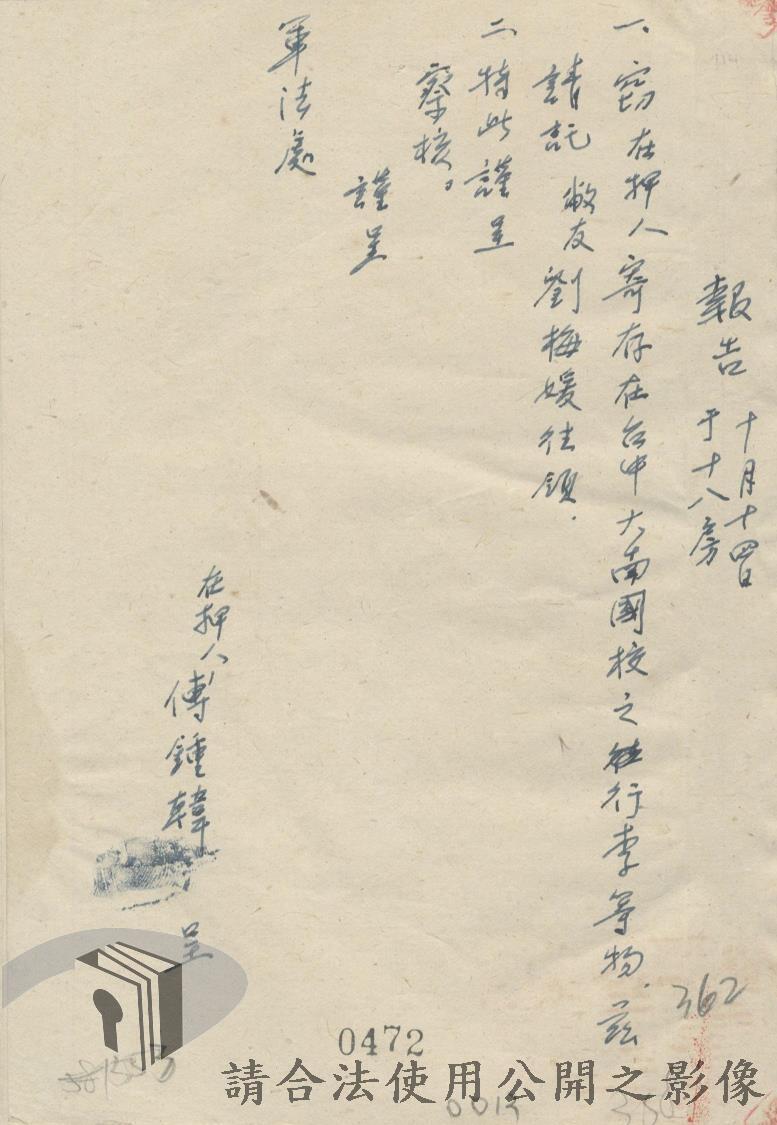 報告 十月十四日
于十八房
一、竊在押人寄存在台中大南國校之行李等物.茲
請託敝友劉梅媛往領.
二特此謹呈
察核。
謹呈
軍法處
在押人傅鍾韓 呈
362
0472
0013
請合法使用公開之影像